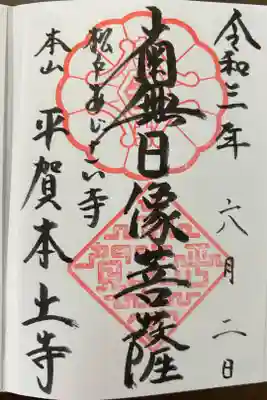 令和三年
六月二日
南無日像菩薩
松戸あじさい寺
本山
平賀本土寺